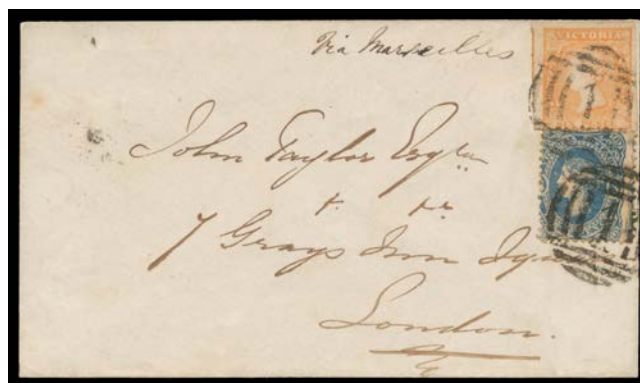 Via Marseilles
VICTORIA
John Taylor Esqre
7 Grays Inn Sqre
London.